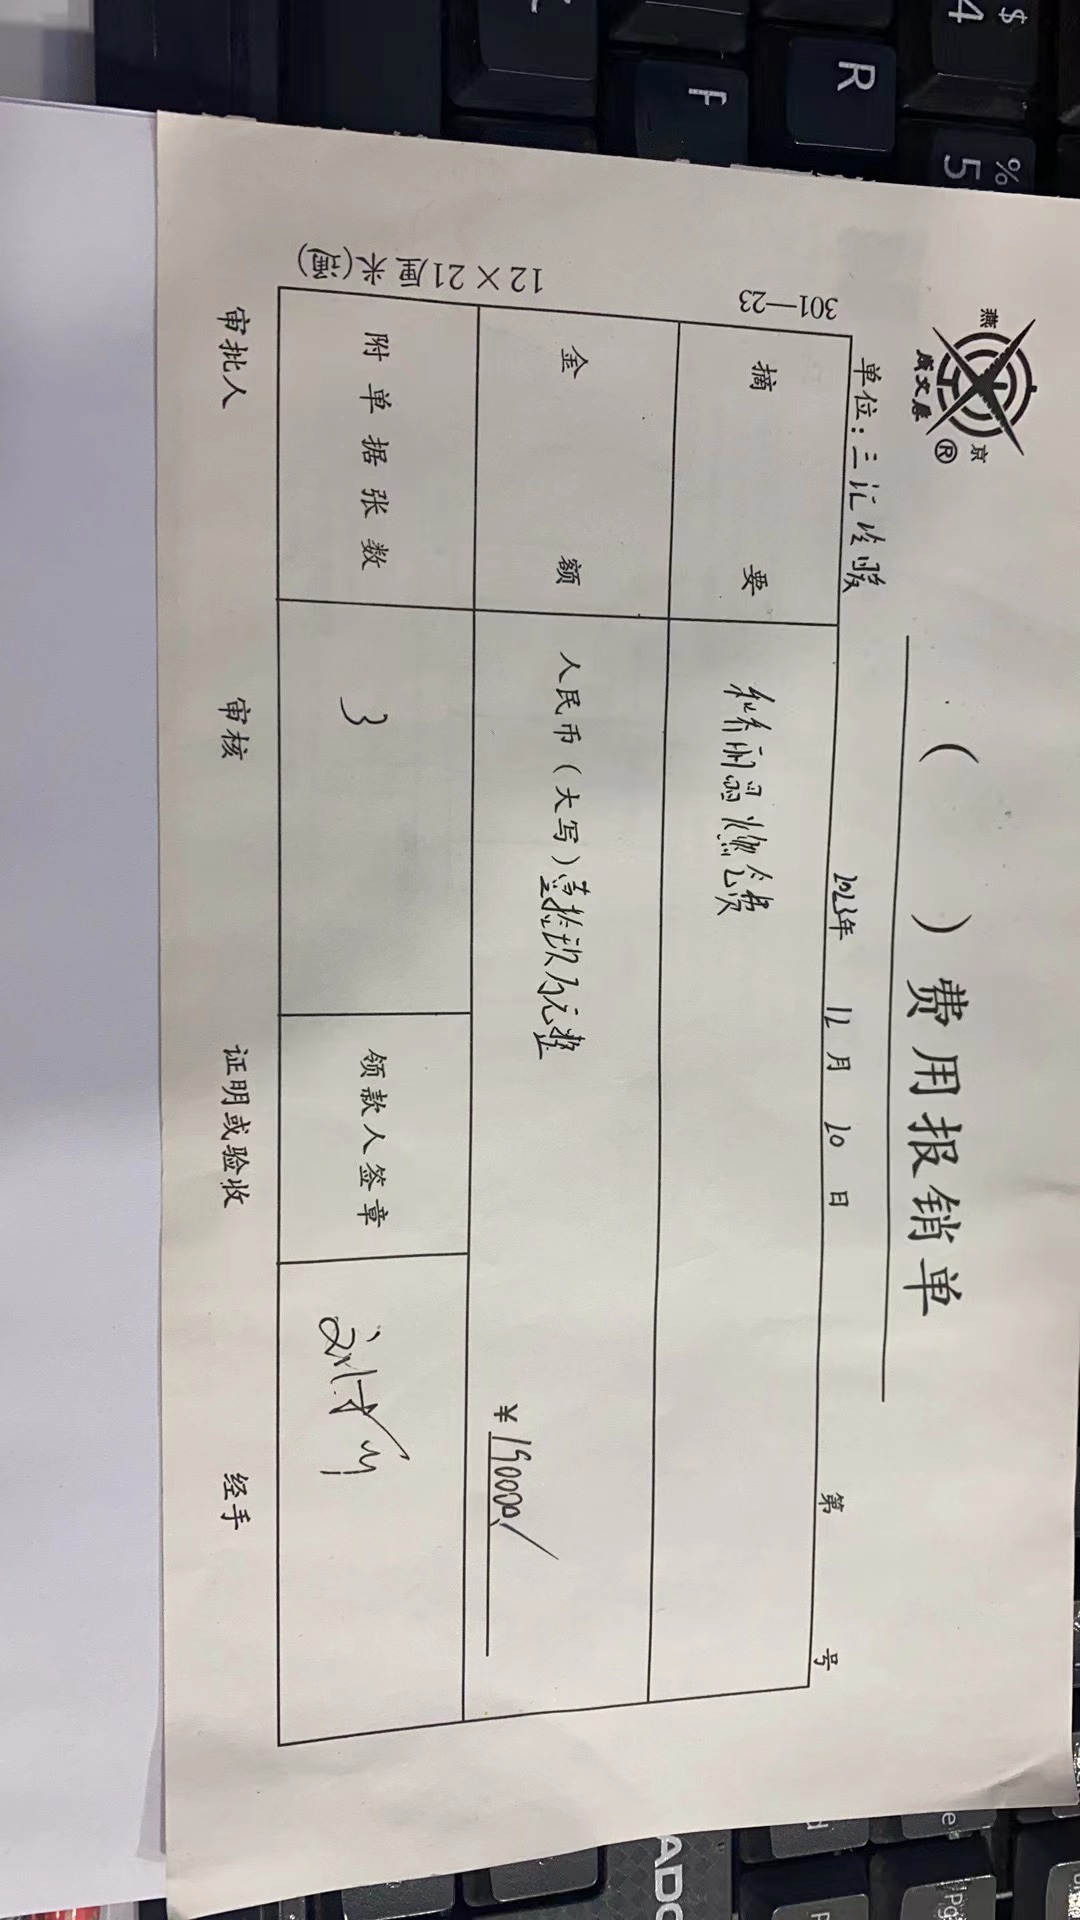 燕京
成文厚
®
( ) 费用报销单
单位：三汇冷暖 2023年 12月 20日 第 号
摘要
金额 人民币（大写）壹拾玖万元整 ¥190000/
附单据张数 3 领款人签章
审批人 审核 证明或验收 经手
301—23
12×21厘米(通)
$ 4
R
F
% 5